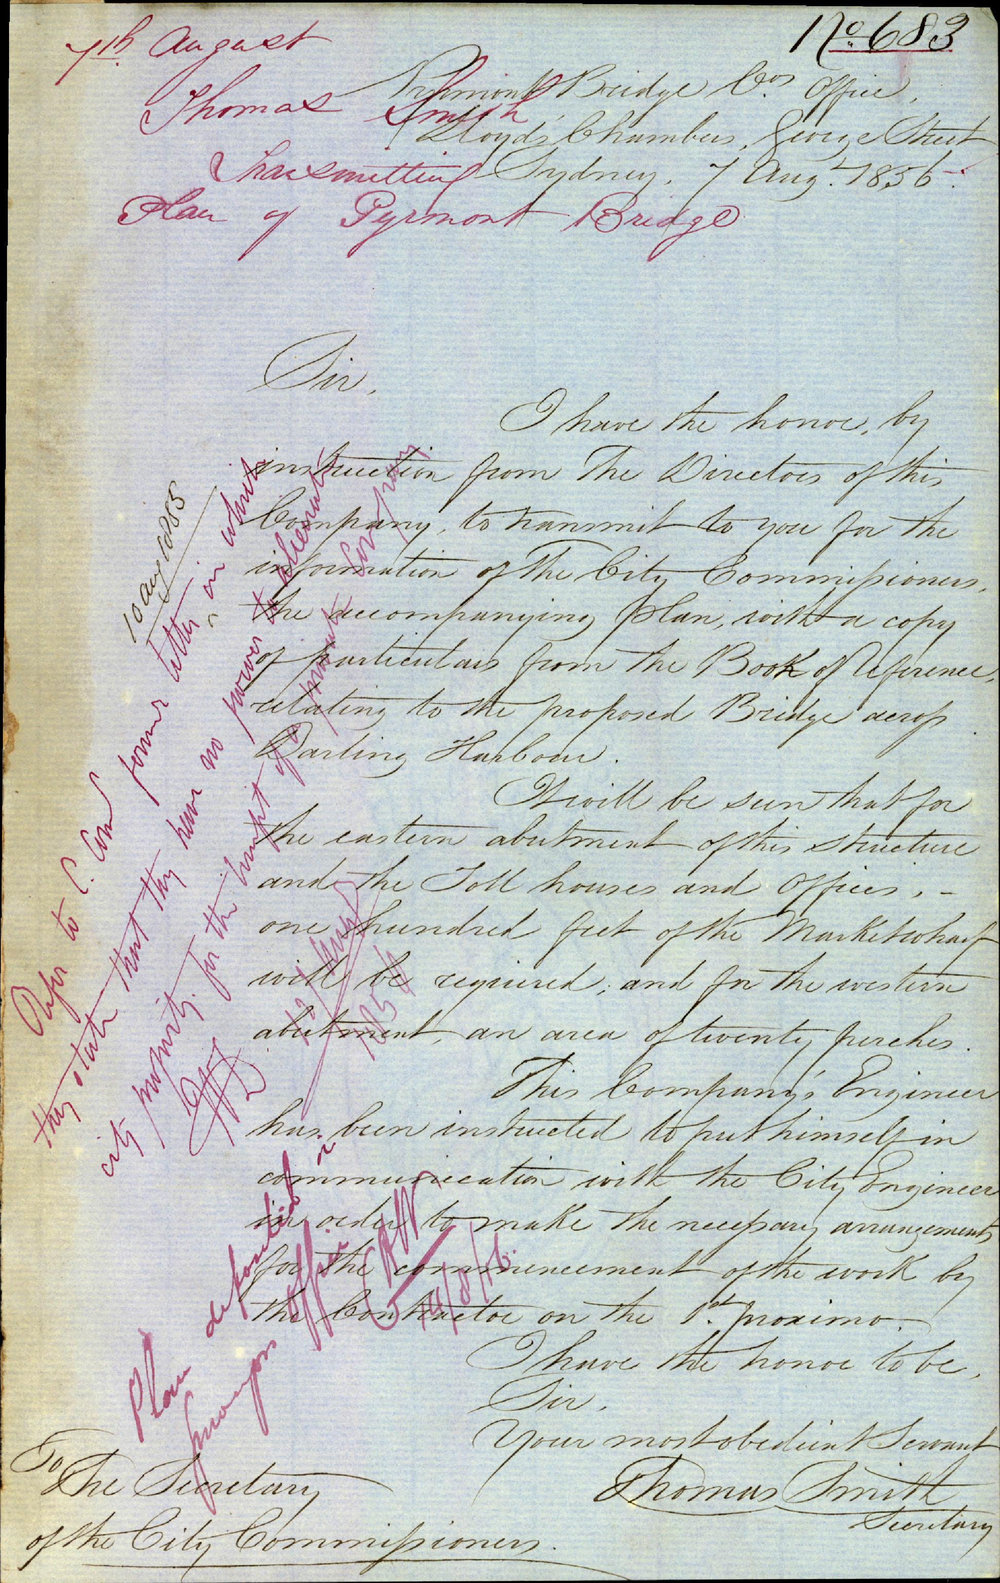 No. 683
7th August
Thomas Smith
Transmitting
Plan of Pyrmont Bridge
Pyrmont Bridge Cos. Office,
Lloyds Chambers, George Street
Sydney, 7 Augt. 1856.
Sir,
I have the honor, by
instruction from The Directors of this
Company, to transmit to you for the
information of The City Commissioners,
the accompanying Plan, with a copy
of particulars from the Book of Reference,
relating to the proposed Bridge across
Darling Harbour.
It will be seen that for
the eastern abutment of this structure
and the Toll houses and Offices, -
one hundred feet of the Market wharf
will be required; and for the western
abutment, an area of twenty perches.
This Company's Engineer
has been instructed to put himself in
communication with the City Engineer
in order to make the necessary arrangements
for the commencement of the work by
the Contractor on the 1st. proximo.
I have the honor to be,
Sir,
Your most obedient Servant
Thomas Smith
Secretary
To
The Secretary
of the City Commissioners.
10 Aug
Refer to C. Com former letter in which
they state that they have no power to alienate
city property for the benefit of a private Company
Plan deposited in
Office
14/8/56